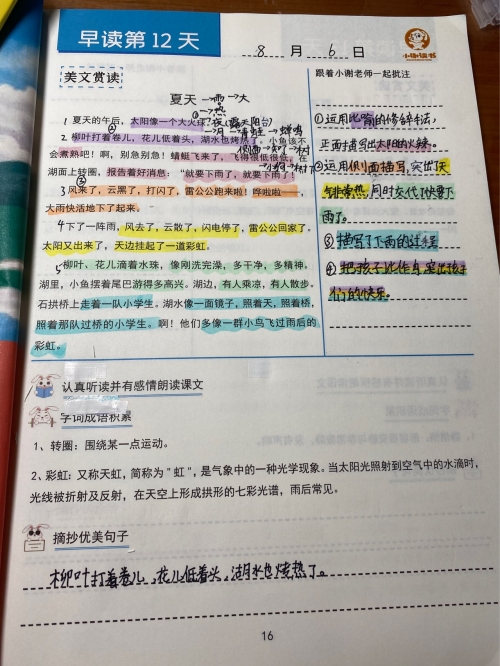 早读第 12 天
8 月 6 日
小谢读书
美文赏读
夏天→雨→大
→热
1 夏天的午后，太阳像一个大火球。
2 柳叶打着卷儿，花儿低着头，湖水也烤热了。小鱼该不
会煮熟吧！啊，别急别急！蜻蜓飞来了，飞得很低很低，在
湖面上转圈，报告着好消息："就要下雨了，就要下雨了！
3 风来了，云黑了，打闪了，雷公公跑来啦！哗啦啦——，
大雨快活地下了起来。
4 下了一阵雨，风去了，云散了，闪电停了，雷公公回家了。
太阳又出来了，天边挂起了一道彩虹。
5 柳叶，花儿滴着水珠，像刚洗完澡，多干净，多精神，
湖里，小鱼摆着尾巴游得多高兴。湖边，有人乘凉，有人散步。
石拱桥上走着一队小学生。湖水像一面镜子，照着天，照着桥，
照着那队过桥的小学生。啊！他们多像一群小鸟飞过雨后的
彩虹。
跟着小谢老师一起批注
①运用比喻的修辞手法，
正面描写出太阳的火辣。
②运用侧面描写，突出了天
气非常热，同时交代了快要下
雨了。
③描写了下雨的过程
④把孩子比作鸟突出孩子
们的快乐。
认真听读并有感情朗读课文
字词成语积累
1、转圈：围绕某一点运动。
2、彩虹：又称天虹，简称为"虹"，是气象中的一种光学现象。当太阳光照射到空气中的水滴时，
光线被折射及反射，在天空上形成拱形的七彩光谱，雨后常见。
摘抄优美句子
柳叶打着卷儿，花儿低着头，湖水也烧热了。
16